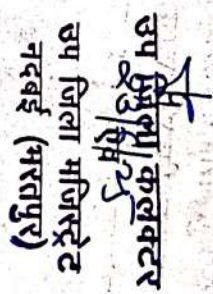 उप जिला कलक्टर
उप जिला मजिस्ट्रेट
नदबई (भरतपुर)